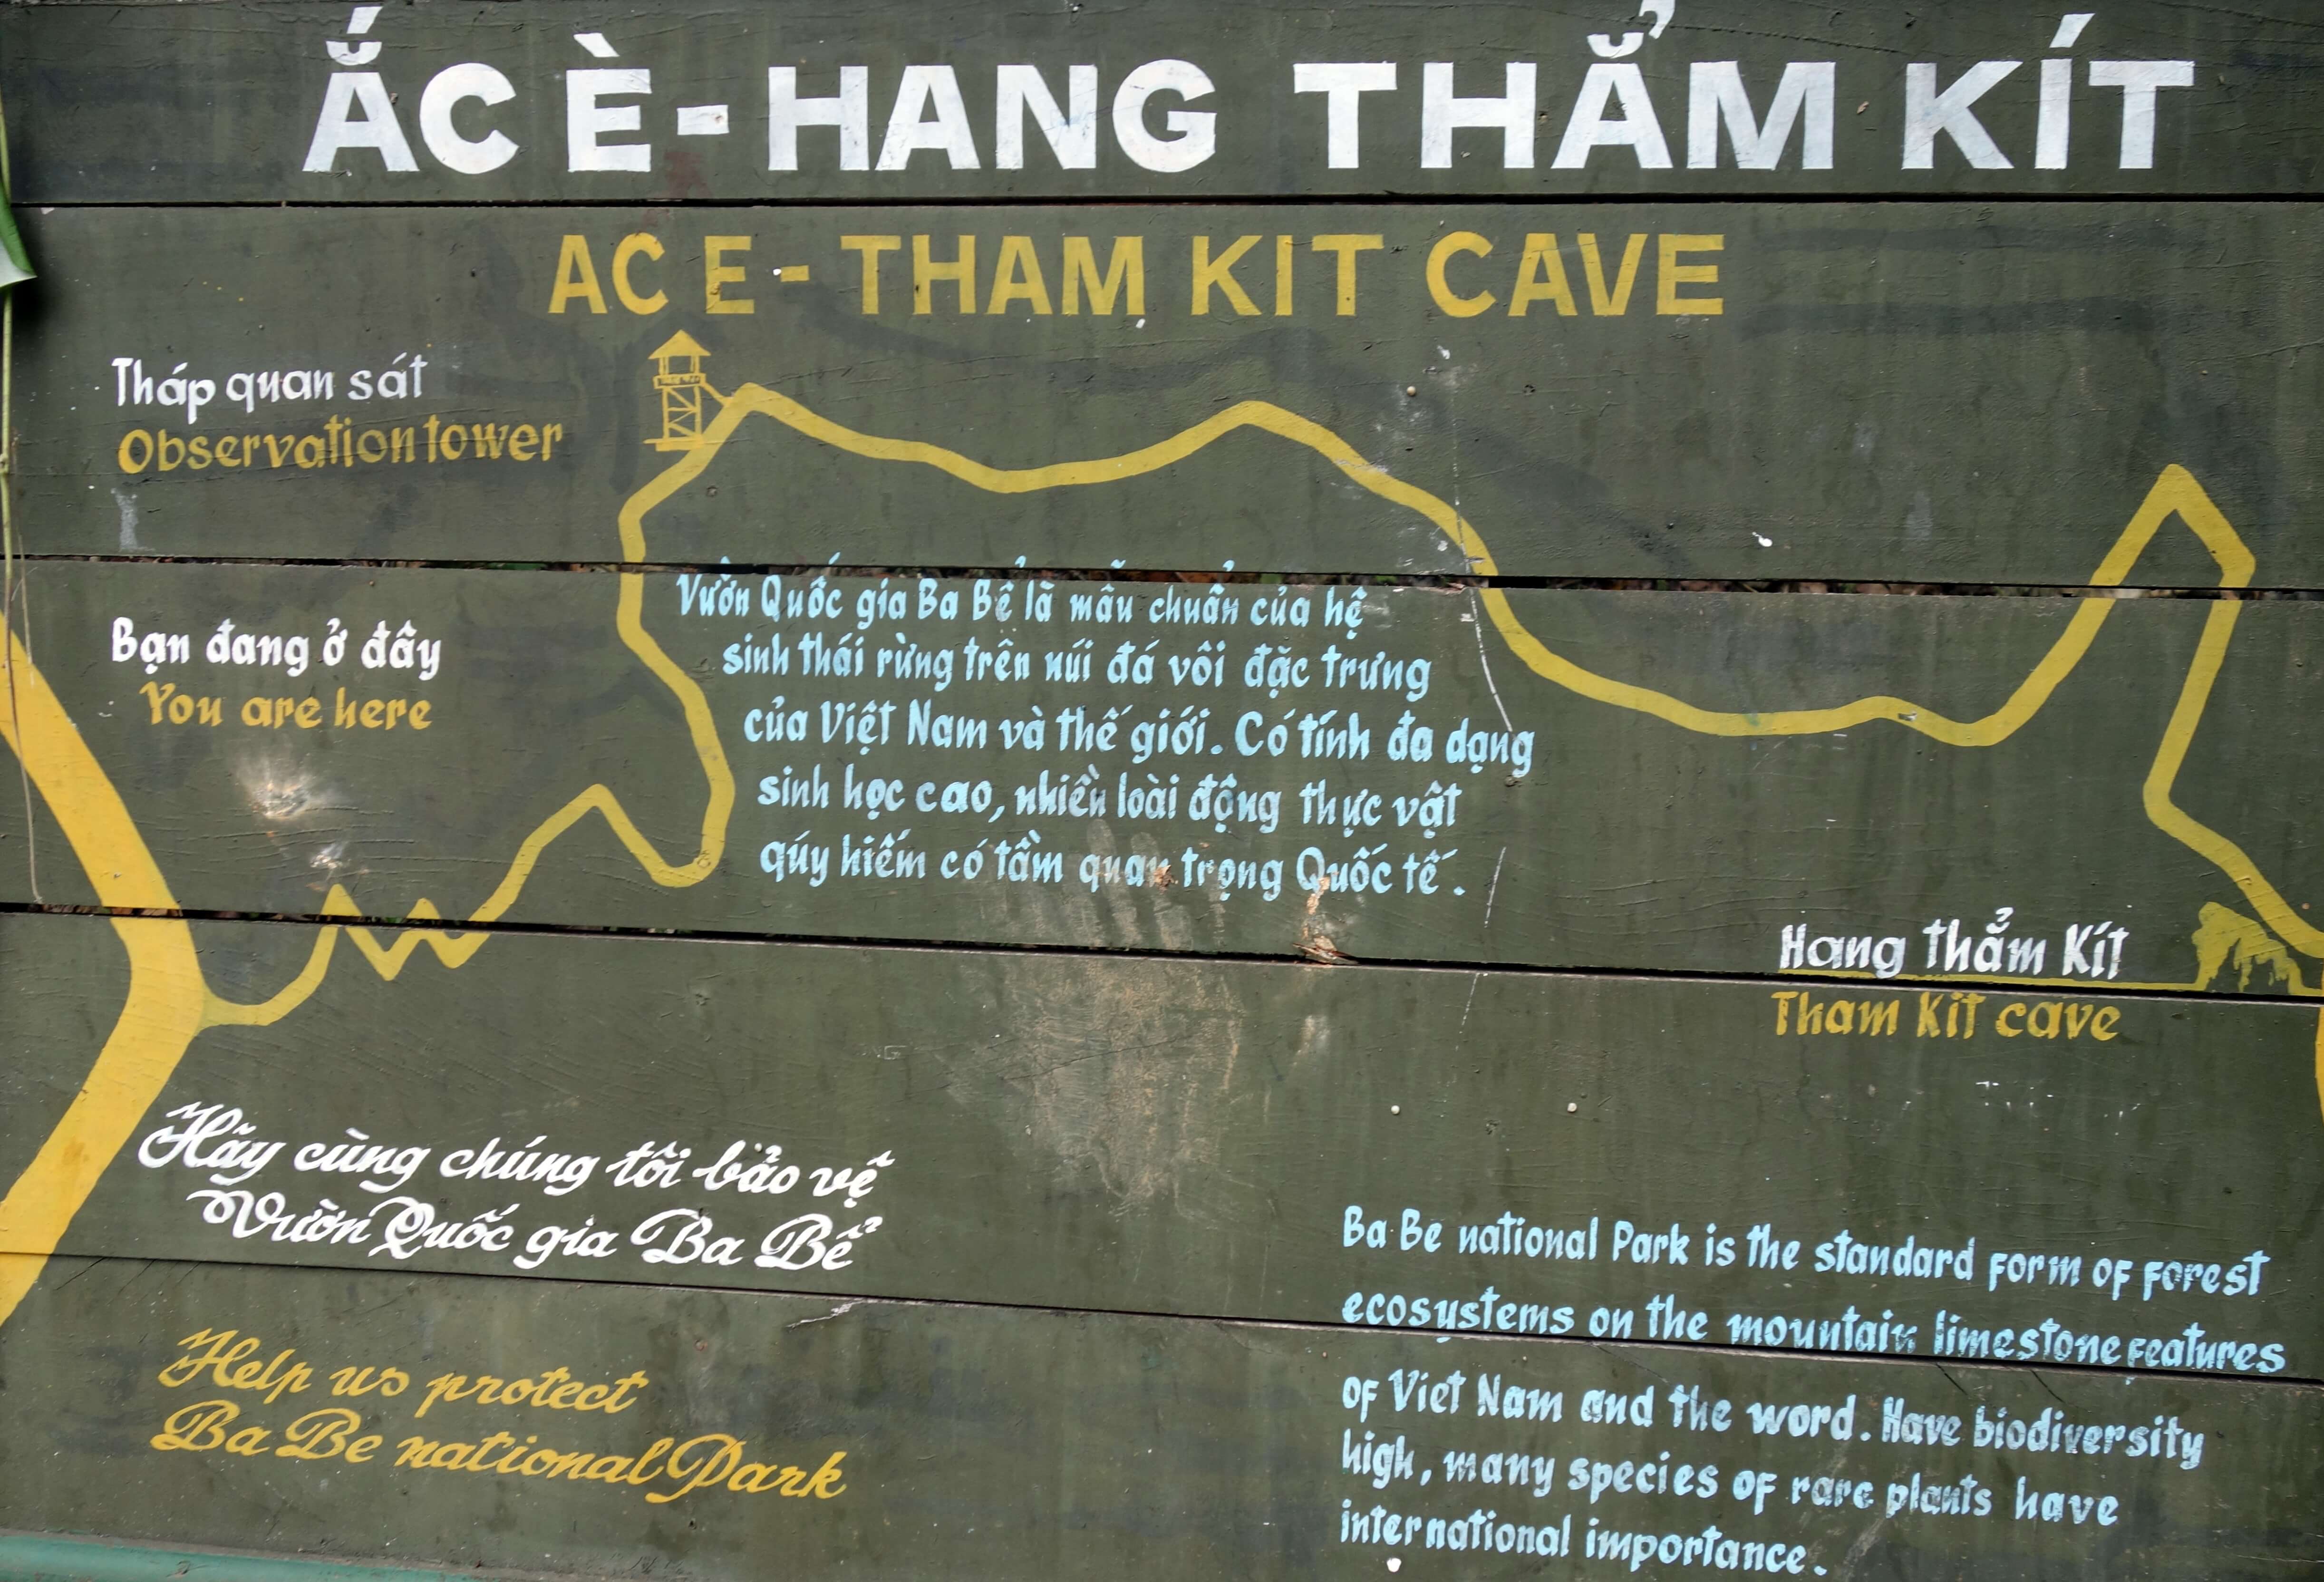 ẮC È - HANG THẲM KÍT
AC E - THAM KIT CAVE
Tháp quan sát
Observation tower
Bạn đang ở đây
You are here
Vườn Quốc gia Ba Bể là mẫu chuẩn của hệ
sinh thái rừng trên núi đá vôi đặc trưng
của Việt Nam và thế giới. Có tính đa dạng
sinh học cao, nhiều loài động thực vật
qúy hiếm có tầm quan trọng Quốc tế.
Hang Thẳm Kít
Tham Kit cave
Hãy cùng chúng tôi bảo vệ
Vườn Quốc gia Ba Bể
Help us protect
Ba Be national Park
Ba Be national Park is the standard form of forest
ecosystems on the mountain limestone features
of Viet Nam and the word. Have biodiversity
high, many species of rare plants have
international importance.